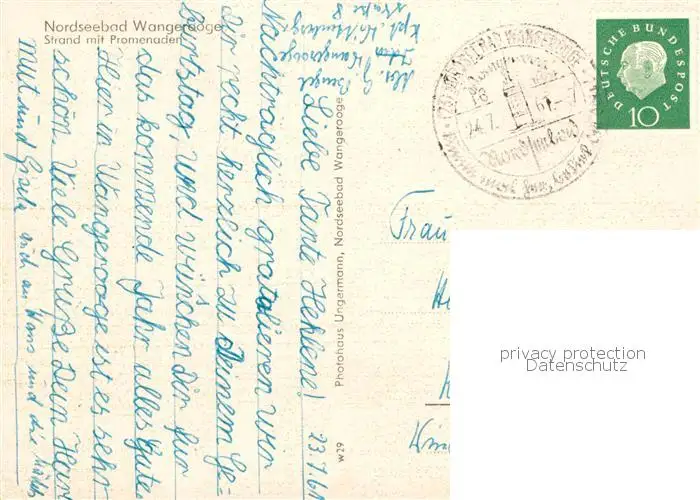 Nordseebad Wangerooge
Strand mit Promenaden
Abs. G.
Wangerooge
Straße 8
Liebe Tante Hehlene! 23.7.61
Nachträglich gratulieren wir
Dir recht herzlich zu Deinem Ge-
burtstag, und wünschen Dir für
das kommende Jahr alles Gute.
Hier in Wangerooge ist es sehr
schön. Viele Grüße Dein Hart
mut und Gisela auch an Hans und die
Photohaus Ungermann, Nordseebad Wangerooge
W29
NORDSEEBAD WANGEROOGE
24.7.61-7
DEUTSCHE BUNDESPOST
10
Frau
privacy protection
Datenschutz